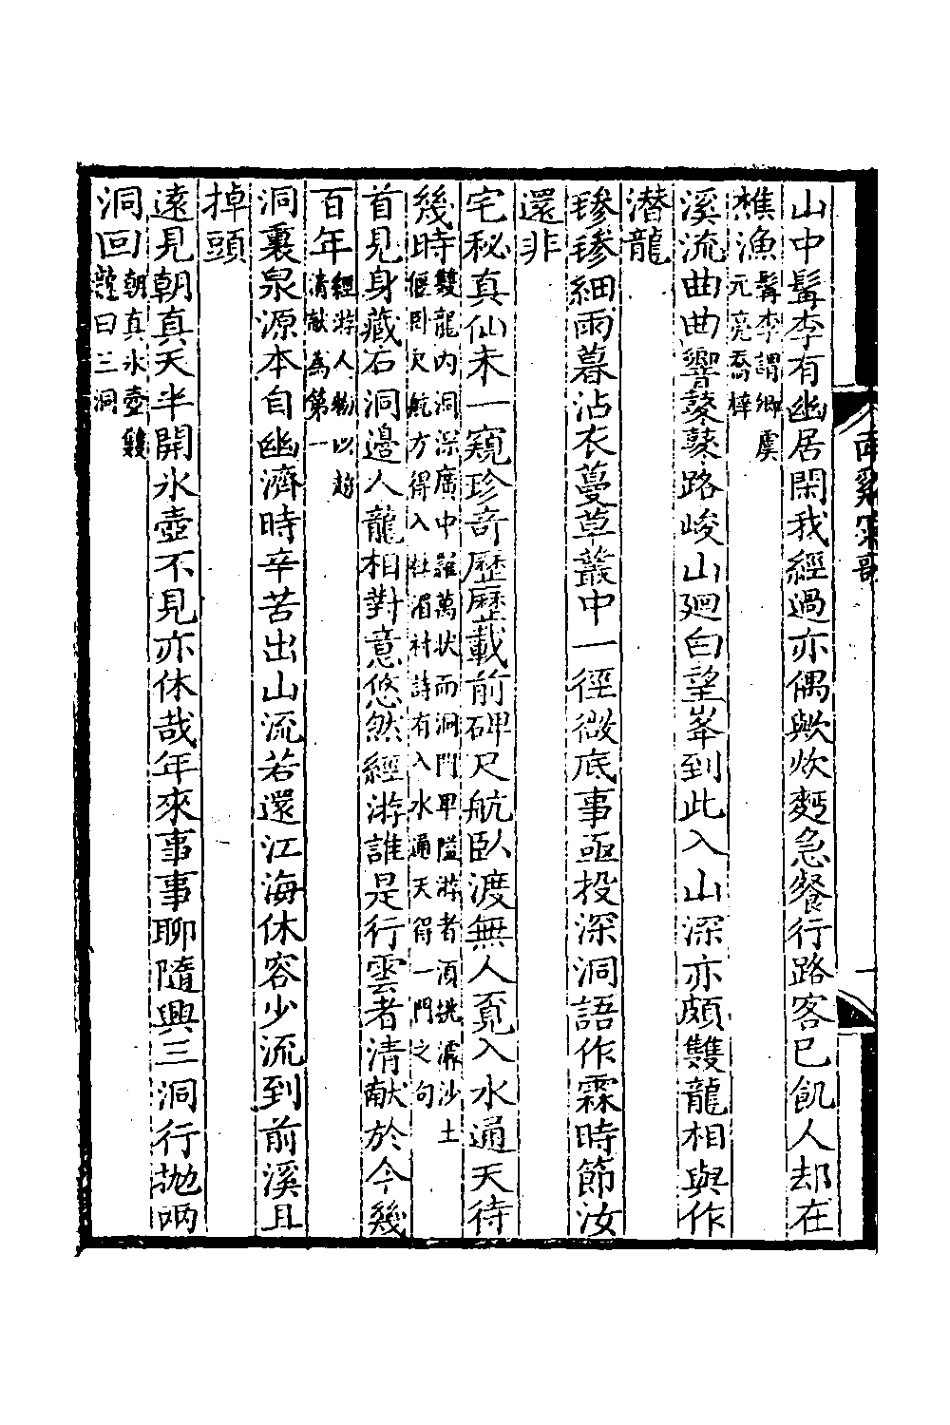 山中髯李有幽居閑我經過亦偶歟炊麪急餐行路客已飢人却在
樵漁髯李謂鄉虞
元亮喬梓
溪流曲曲響𨍏𨍏路峻山廻白望峯到此入山深亦頗雙龍相與作
潜龍
𣯶𣯶細雨暮沾衣蔓草叢中一徑微底事亟投深洞語作霖時節汝
還非
宅秘真仙未一窺珍奇歷歷載前碑尺航臥渡無人覔入水通天待
幾時雙龍内洞深廣中羅萬状而洞門卑隘游者須挑瀑沙土
偃卧欠航方得入杜眉村詩有入水通天得一門之句
首見身藏石洞邊人龍相對意悠然經游誰是行雲者清献於今幾
百年經游人物以趙
清献為第一
洞裏泉源本自幽濟時辛苦出山流若還江海休容少流到前溪且
掉頭
遠見朝真天半開氷壺不見亦休哉年來事事聊隨興三洞行抛兩
洞回朝真氷壺雙
龍曰三洞